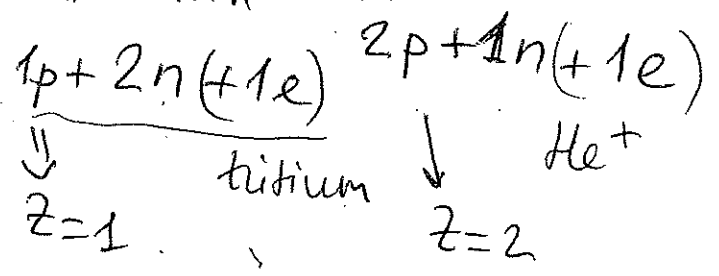 1p + 2n (+1e)
2p + 1n (+1e)
⇓
tritium
↓
He⁺
Z=1
Z=2